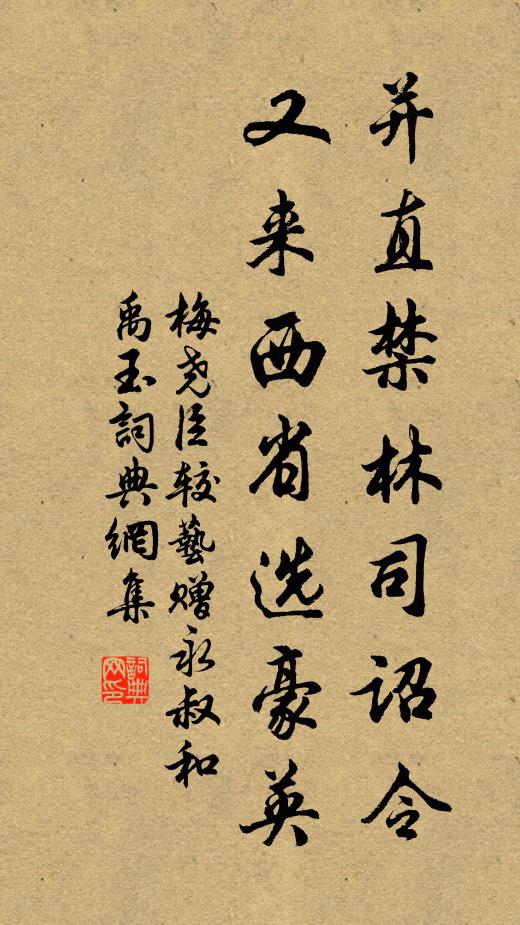 并直禁林司诏令
又来西省选豪英
梅尧臣较藝赠永叔和
禹玉詞典網集
詞典网印